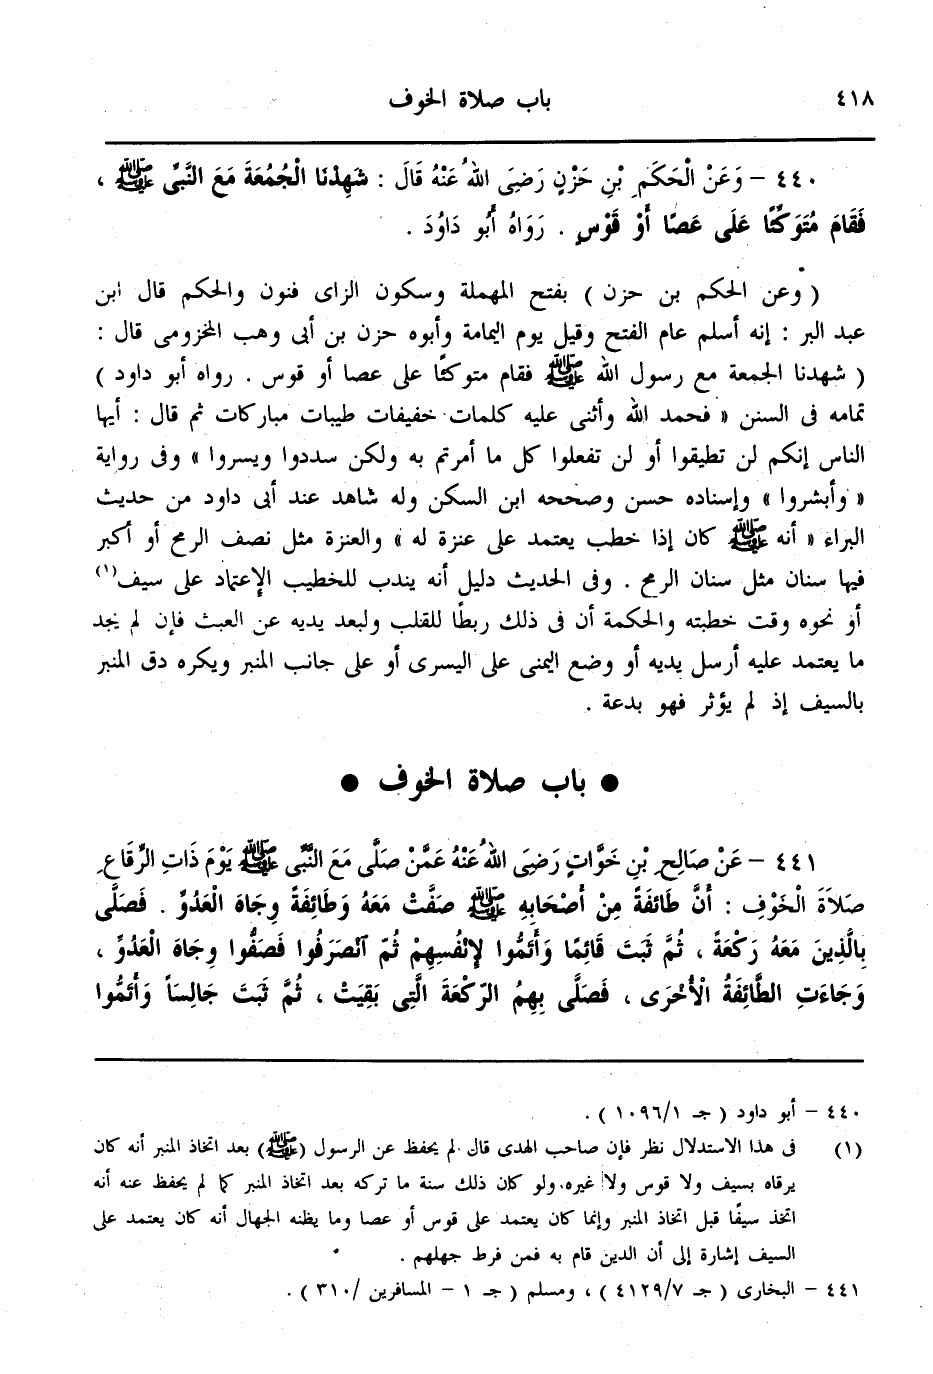 ٤١٨ باب صلاة الخوف
٤٤٠ – وَعَنْ الْحَكَمِ بْنِ حَزْنٍ رَضِىَ اللهُ عَنْهُ قَالَ : شَهِدْنَا الْجُمُعَةَ مَعَ النَّبِّى ﷺ ،
فَقَامَ مُتَوَكِّئًا عَلَى عَصًا أَوْ قَوْسٍ . رَوَاهُ أَبُو دَاوُدَ .
( وعن الحكم بن حزن ) بفتح المهملة وسكون الزاى فنون والحكم قال ابن
عبد البر : إنه أسلم عام الفتح وقيل يوم اليمامة وأبوه حزن بن أبى وهب المخزومى قال :
( شهدنا الجمعة مع رسول الله ﷺ فقام متوكئًا على عصا أو قوس . رواه أبو داود )
تمامه فى السنن « فحمد الله وأثنى عليه كلمات خفيفات طيبات مباركات ثم قال : أيها
الناس إنكم لن تطيقوا أو لن تفعلوا كل ما أمرتم به ولكن سددوا ويسروا » وفى رواية
« وأبشروا » وإسناده حسن وصححه ابن السكن وله شاهد عند أبى داود من حديث
البراء « أنه ﷺ كان إذا خطب يعتمد على عنزة له » والعنزة مثل نصف الرمح أو أكبر
فيها سنان مثل سنان الرمح . وفى الحديث دليل أنه يندب للخطيب الإعتماد على سيف(١)
أو نحوه وقت خطبته والحكمة أن فى ذلك ربطًا للقلب ولبعد يديه عن العبث فإن لم يجد
ما يعتمد عليه أرسل يديه أو وضع اليمنى على اليسرى أو على جانب المنبر ويكره دق المنبر
بالسيف إذ لم يؤثر فهو بدعة .
● باب صلاة الخوف ●
٤٤١ – عَنْ صَالِحِ بْنِ خَوَّاتٍ رَضِىَ اللهُ عَنْهُ عَمَّنْ صَلَّى مَعَ النَّبِّى ﷺ يَوْمَ ذَاتِ الرِّقَاعِ
صَلَاَةَ الْخَوْفِ : أَنَّ طَائِفَةً مِنْ أَصْحَابِهِ ﷺ صَفَّتْ مَعَهُ وَطَائِفَةً وِجَاهَ الْعَدُوِّ . فَصَلَّى
بِالَّذِينَ مَعَهُ رَكْعَةً ، ثُمَّ ثَبَتَ قَائِمًا وَأَتَمُّوا لِاَنْفُسِهِمْ ثُمّ ٱنْصَرَفُوا فَصَفُّوا وِجَاهَ الْعَدُوِّ ،
وَجَاءَتِ الطَّائِفَةُ الْأُخْرَى ، فَصَلَّى بِهِمُ الرّكْعَةَ الَّتِى بَقِيَتْ ، ثُمَّ ثَبَتَ جَالِسَاً وَأَتَمُّوا
٤٤٠ – أبو داود ( جـ ١٠٩٦/١ ) .
(١) فى هذا الاستدلال نظر فإن صاحب الهدى قال لم يحفظ عن الرسول (ﷺ) بعد اتخاذ المنبر أنه كان
يرقاه بسيف ولا قوس ولا غيره، ولو كان ذلك سنة ما تركه بعد اتخاذ المنبر كما لم يحفظ عنه أنه
اتخذ سيفًا قبل اتخاذ المنبر وإنما كان يعتمد على قوس أو عصا وما يظنه الجهال أنه كان يعتمد على
السيف إشارة إلى أن الدين قام به فمن فرط جهلهم .
٤٤١ – البخارى ( جـ ٤١٢٩/٧ ) ، ومسلم ( جـ ١ – المسافرين /٣١٠ ) .